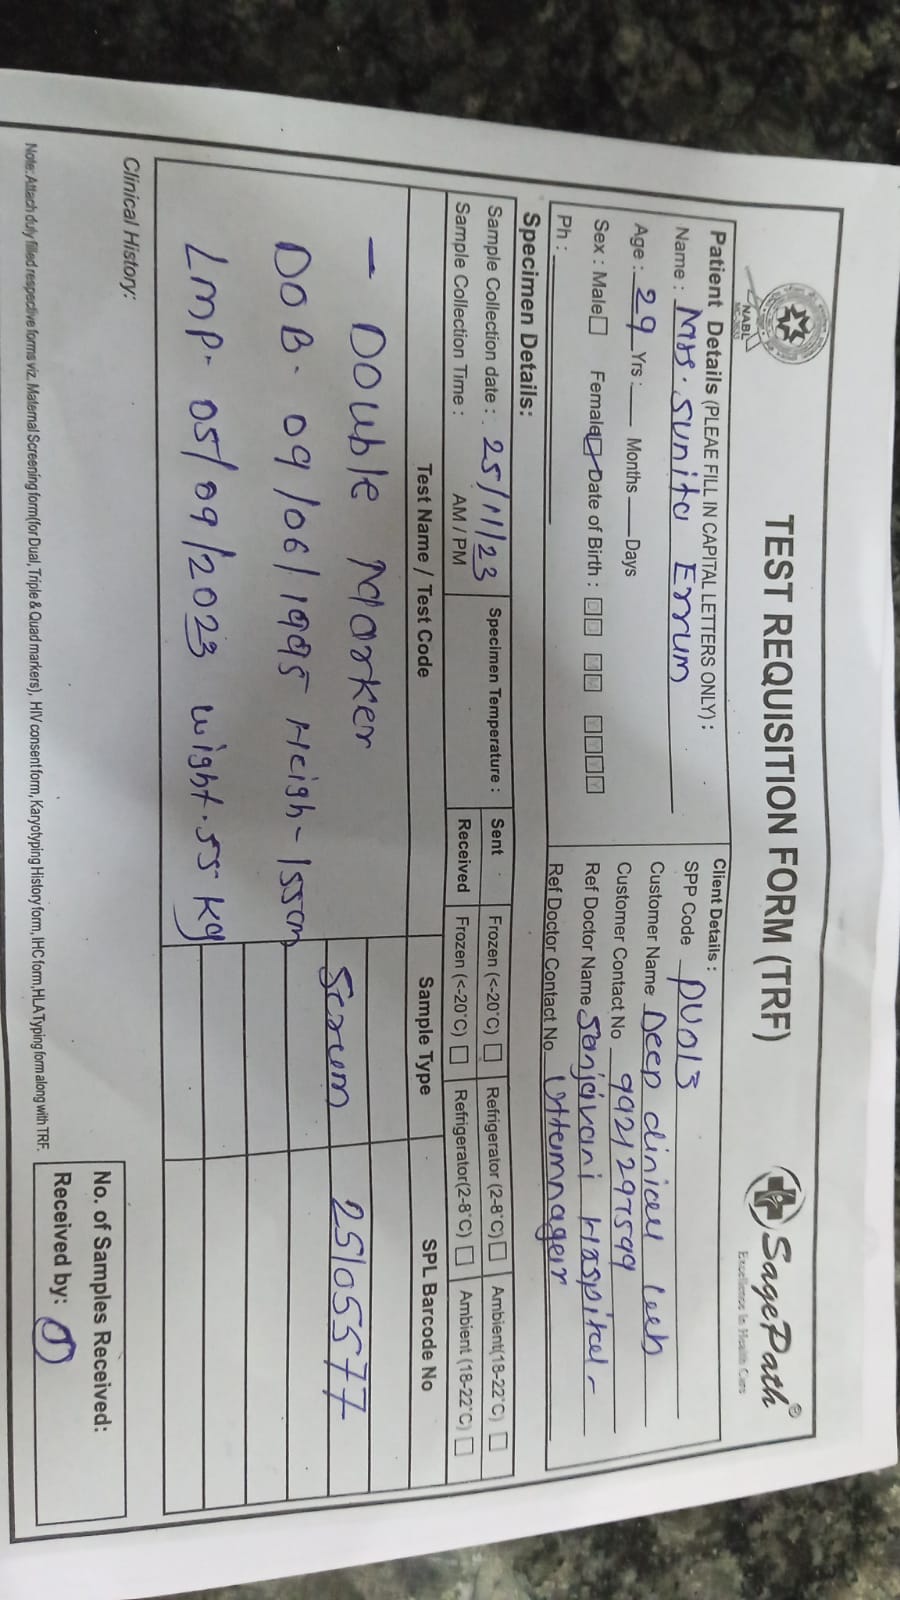 NABL
TEST REQUISITION FORM (TRF)
SagePath®
Excellence In Health Care
Patient Details (PLEAE FILL IN CAPITAL LETTERS ONLY) :
Name : Mrs. Sunita Errum
Age : 29 Yrs : Months Days
Sex : Male Female Date of Birth : DD MM YYYY
Ph :
Client Details :
SPP Code PU013
Customer Name Deep clinical Lab
Customer Contact No 9921297599
Ref Doctor Name Sanjivani Hospital
Ref Doctor Contact No Uttamnagar
Specimen Details:
Sample Collection date : 25/11/23 Specimen Temperature : Sent Frozen (<-20°C) Refrigerator (2-8°C) Ambient(18-22°C)
Sample Collection Time : AM / PM Received Frozen (<-20°C) Refrigerator(2-8°C) Ambient (18-22°C)
Test Name / Test Code Sample Type SPL Barcode No
- Double Marker Serum 25105577
DOB - 09/06/1995 Heigh - 155cm
LMP - 05/09/2023 wight . 55 kg
Clinical History:
No. of Samples Received:
Received by:
Note: Attach duly filled respective forms viz. Maternal Screening form(for Dual, Triple & Quad markers), HIV consent form, Karyotyping History form, IHC form, HLA Typing form along with TRF.